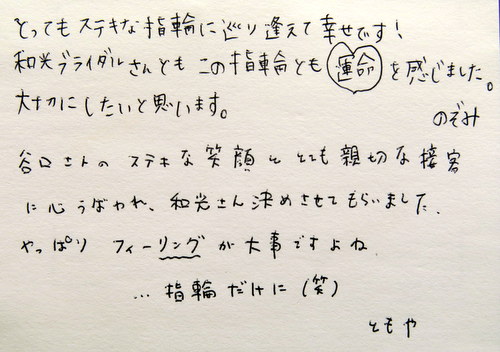 とってもステキな指輪に巡り逢えて幸せです!
和光ブライダルさんともこの指輪とも運命を感じました。
大切にしたいと思います。
のぞみ
谷口さんのステキな笑顔ととても親切な接客
に心うばわれ、和光さん決めさせてもらいました。
やっぱりフィーリングが大事ですよね
…指輪だけに(笑)
ともや